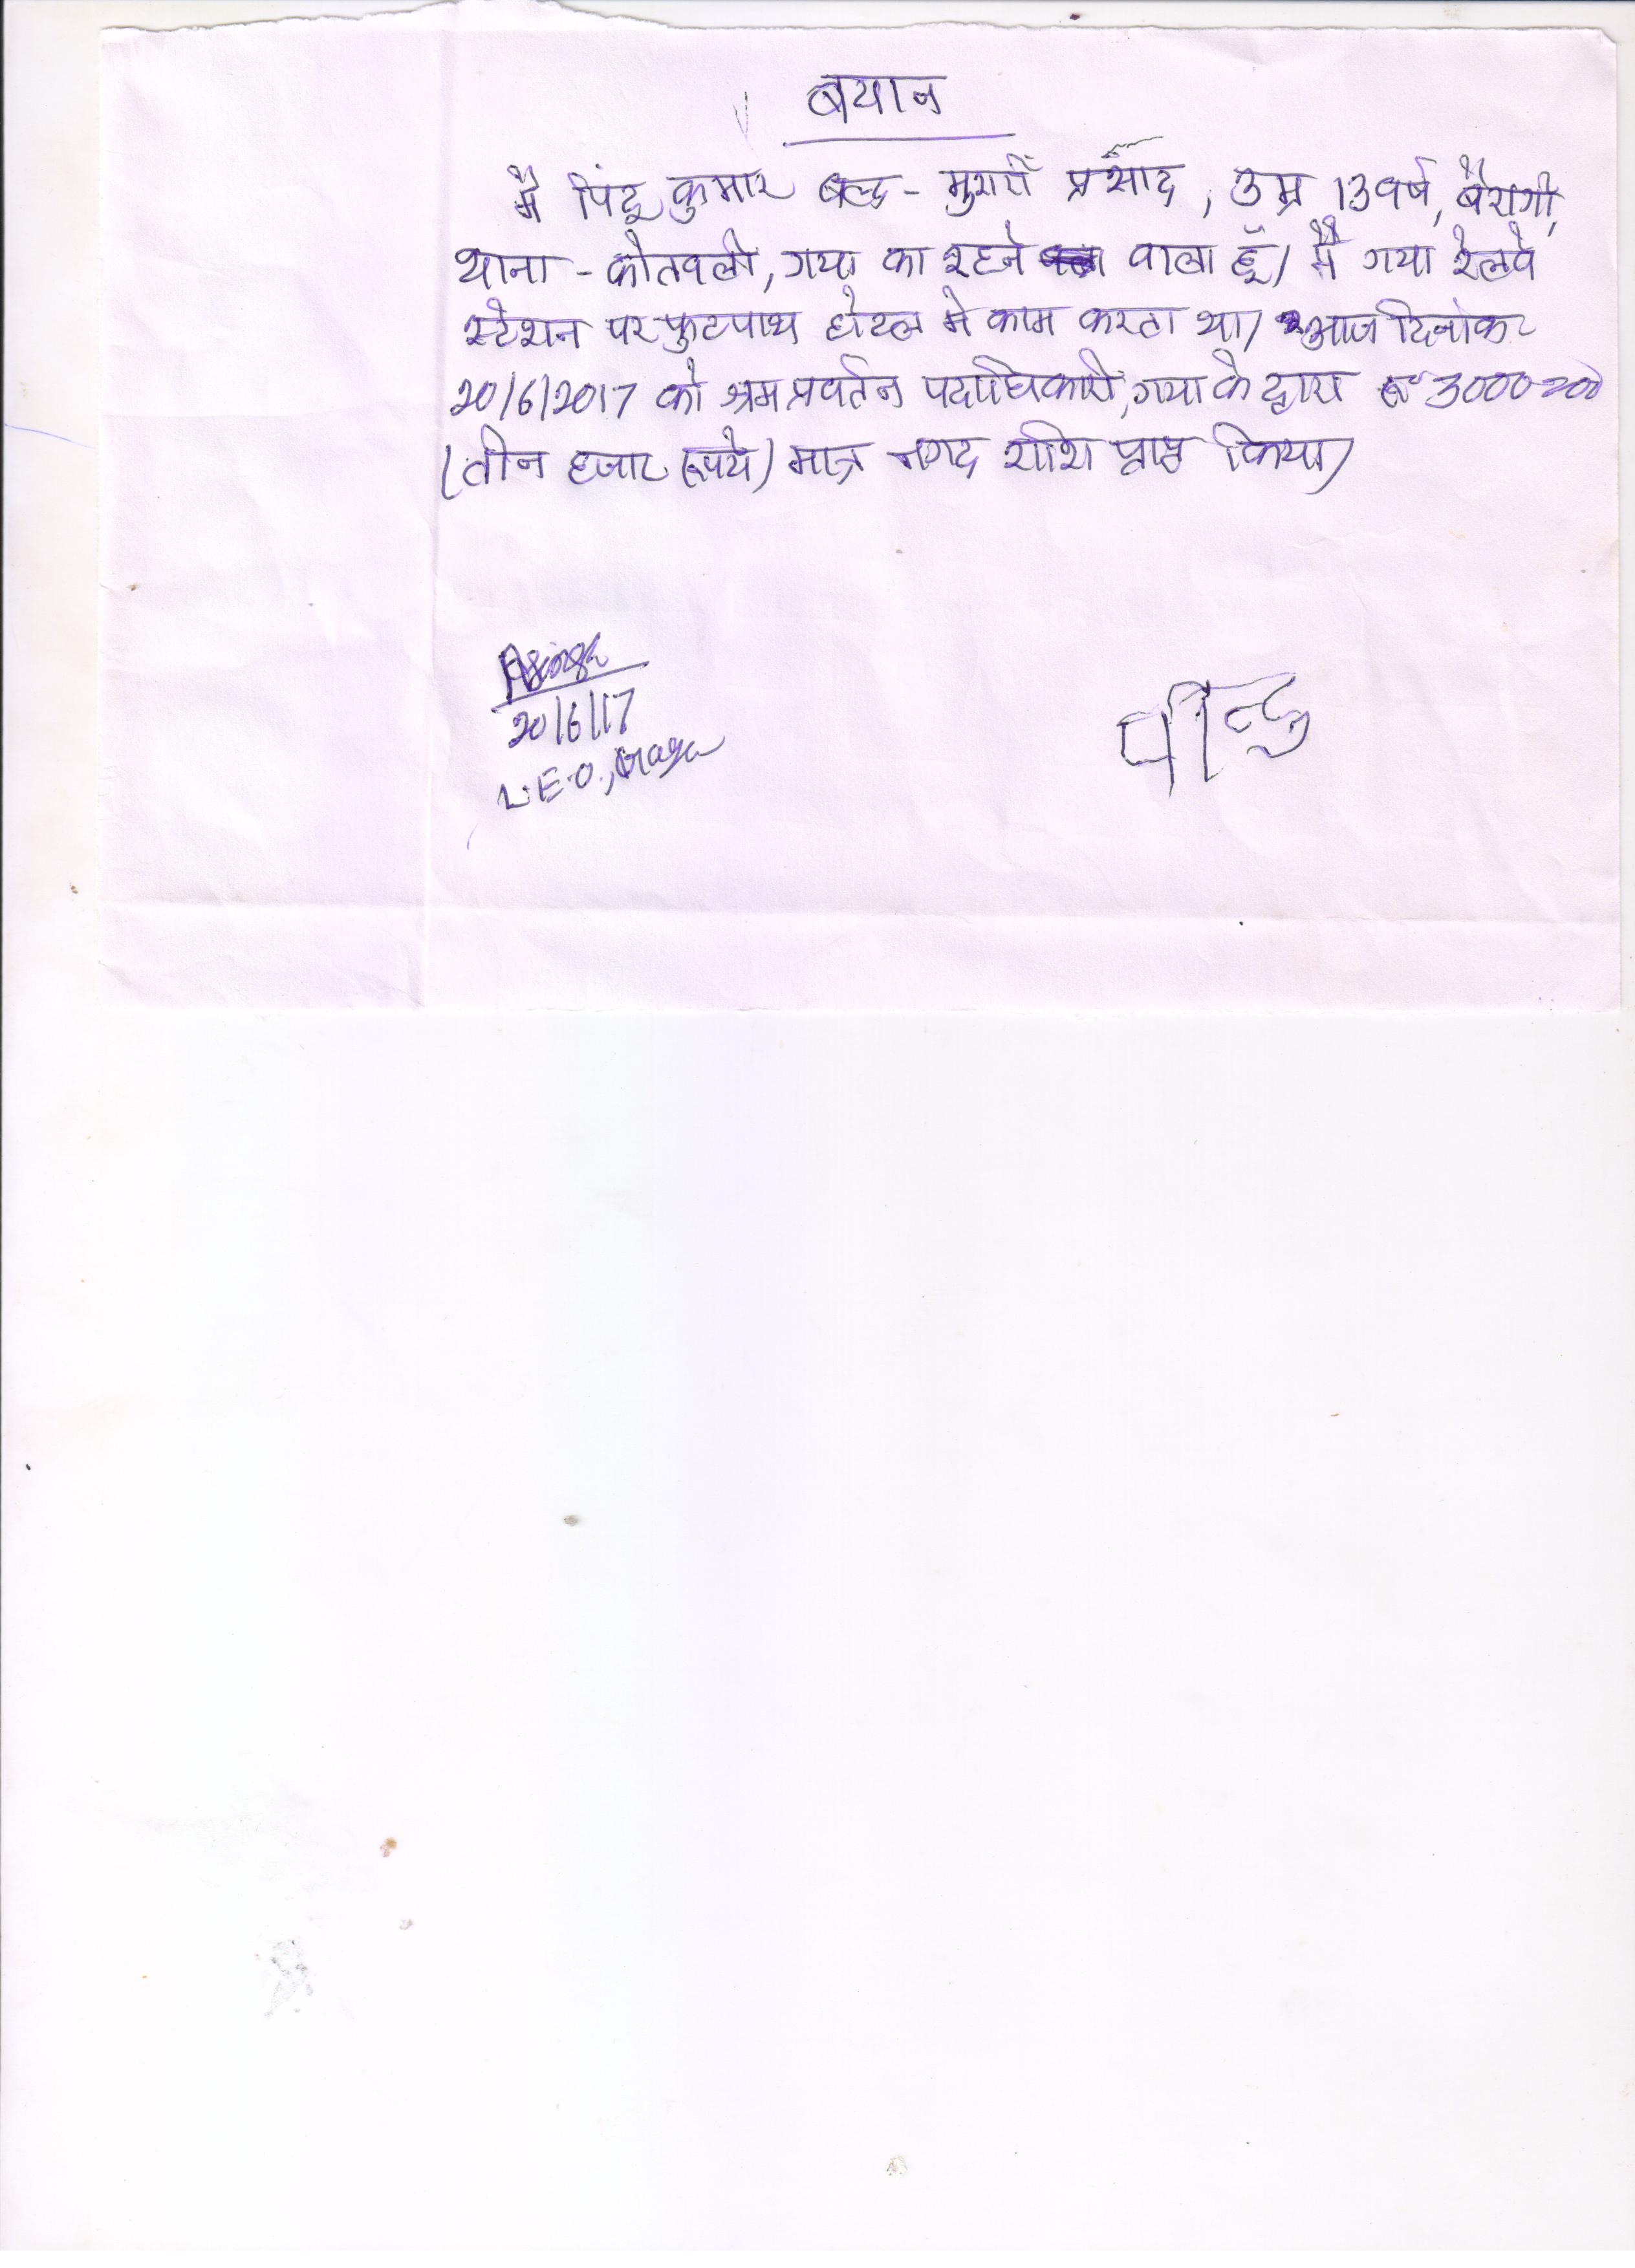 बयान
मै पिंटू कुमार बल्द - मुरारी प्रसाद, उम्र 13 वर्ष, बैरागी,
थाना - कोतवली, गया का रहने वाला हूँ। मै गया रेलवे
स्टेशन पर फुटपाथ होटल मे काम करता था। आज दिनांक
20/6/2017 को श्रम प्रवर्तन पदाधिकारी, गया के द्वारा रू 3000=00
(तीन हजार रूपये) मात्र नगद राशि प्राप्त किया।
20/6/17
L.E.O., Gaya